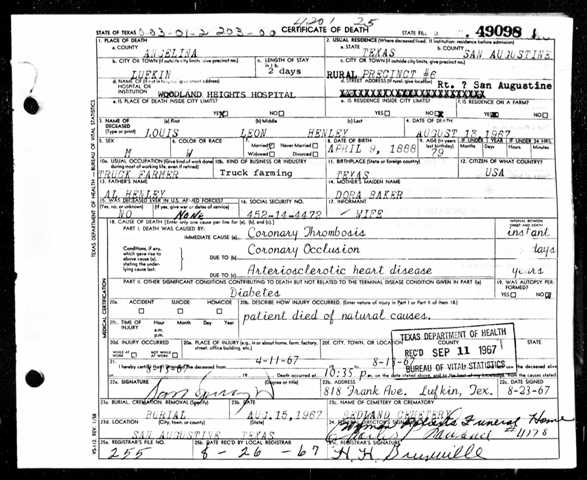 4201 25
STATE OF TEXAS
CERTIFICATE OF DEATH
STATE FILE NO. 49098
1. PLACE OF DEATH
a. COUNTY
ANGELINA
2. USUAL RESIDENCE (Where deceased lived. If institution: residence before admission)
a. STATE TEXAS
b. COUNTY SAN AUGUSTINE
b. CITY OR TOWN (If outside city limits, give precinct no.)
LUFKIN
c. LENGTH OF STAY
2 days
c. CITY OR TOWN (If outside city limits, give precinct no.)
RURAL PRECINCT #6
d. NAME OF
HOSPITAL OR
INSTITUTION
WOODLAND HEIGHTS HOSPITAL
d. STREET ADDRESS (If rural, give location)
Rt. ? San Augustine
e. IS PLACE OF DEATH INSIDE CITY LIMITS?
YES NO
e. IS RESIDENCE INSIDE CITY LIMITS?
YES NO
f. IS RESIDENCE ON A FARM?
YES NO
3. NAME OF
DECEASED
(Type or print)
(a) First
LOUIS
(b) Middle
LEON
(c) Last
HENLEY
4. DATE OF DEATH
AUGUST 13 1967
5. SEX
M
6. COLOR OR RACE
W
7. Married Never Married
Widowed Divorced
8. DATE OF BIRTH
APRIL 9, 1888
79
10a. USUAL OCCUPATION (Give kind of work done during most of working life, even if retired)
TRUCK FARMER
10b. KIND OF BUSINESS OR INDUSTRY
Truck farming
11. BIRTHPLACE (State or foreign country)
TEXAS
12. CITIZEN OF WHAT COUNTRY?
USA
13. FATHER'S NAME
AL HENLEY
14. MOTHER'S MAIDEN NAME
DORA BAKER
15. WAS DECEASED EVER IN U.S. ARMED FORCES?
NO None
16. SOCIAL SECURITY NO.
452-14-4472
17. INFORMANT
WIFE
18. CAUSE OF DEATH [Enter only one cause per line for (a), (b), and (c).]
PART I. DEATH WAS CAUSED BY:
IMMEDIATE CAUSE (a) Coronary Thrombosis instant
Conditions, if any, which gave rise to above cause (a), stating the underlying cause last.
DUE TO (b) Coronary Occlusion days
DUE TO (c) Arteriosclerotic heart disease years
PART II. OTHER SIGNIFICANT CONDITIONS CONTRIBUTING TO DEATH BUT NOT RELATED TO THE TERMINAL DISEASE CONDITION GIVEN IN PART I(a)
Diabetes
19. WAS AUTOPSY PERFORMED?
YES NO
20a. ACCIDENT SUICIDE HOMICIDE
20b. DESCRIBE HOW INJURY OCCURRED. (Enter nature of injury in Part I or Part II of item 18.)
patient died of natural causes.
20c. TIME OF INJURY Hour Month Day Year
a.m.
p.m.
20d. INJURY OCCURRED
WHILE AT WORK NOT WHILE AT WORK
20e. PLACE OF INJURY (e.g., in or about home, farm, factory, street, office building, etc.)
20f. CITY, TOWN, OR LOCATION
COUNTY
STATE
TEXAS DEPARTMENT OF HEALTH
REC'D SEP 11 1967
BUREAU OF VITAL STATISTICS
4-11-67
8-13-67
10:35 p.m.
22a. SIGNATURE
(Degree or title)
22b. ADDRESS
818 Frank Ave. Lufkin, Tex.
22c. DATE SIGNED
8-23-67
23a. BURIAL, CREMATION, REMOVAL (Specify)
BURIAL
23b. DATE
AUG. 15, 1967
23c. NAME OF CEMETERY OR CREMATORY
23d. LOCATION (City, town, or county) (State)
SAN AUGUSTINE TEXAS
Funeral Home
25a. REGISTRAR'S FILE NO.
255
25b. DATE REC'D BY LOCAL REGISTRAR
8-26-67
TEXAS DEPARTMENT OF HEALTH — BUREAU OF VITAL STATISTICS
MEDICAL CERTIFICATION